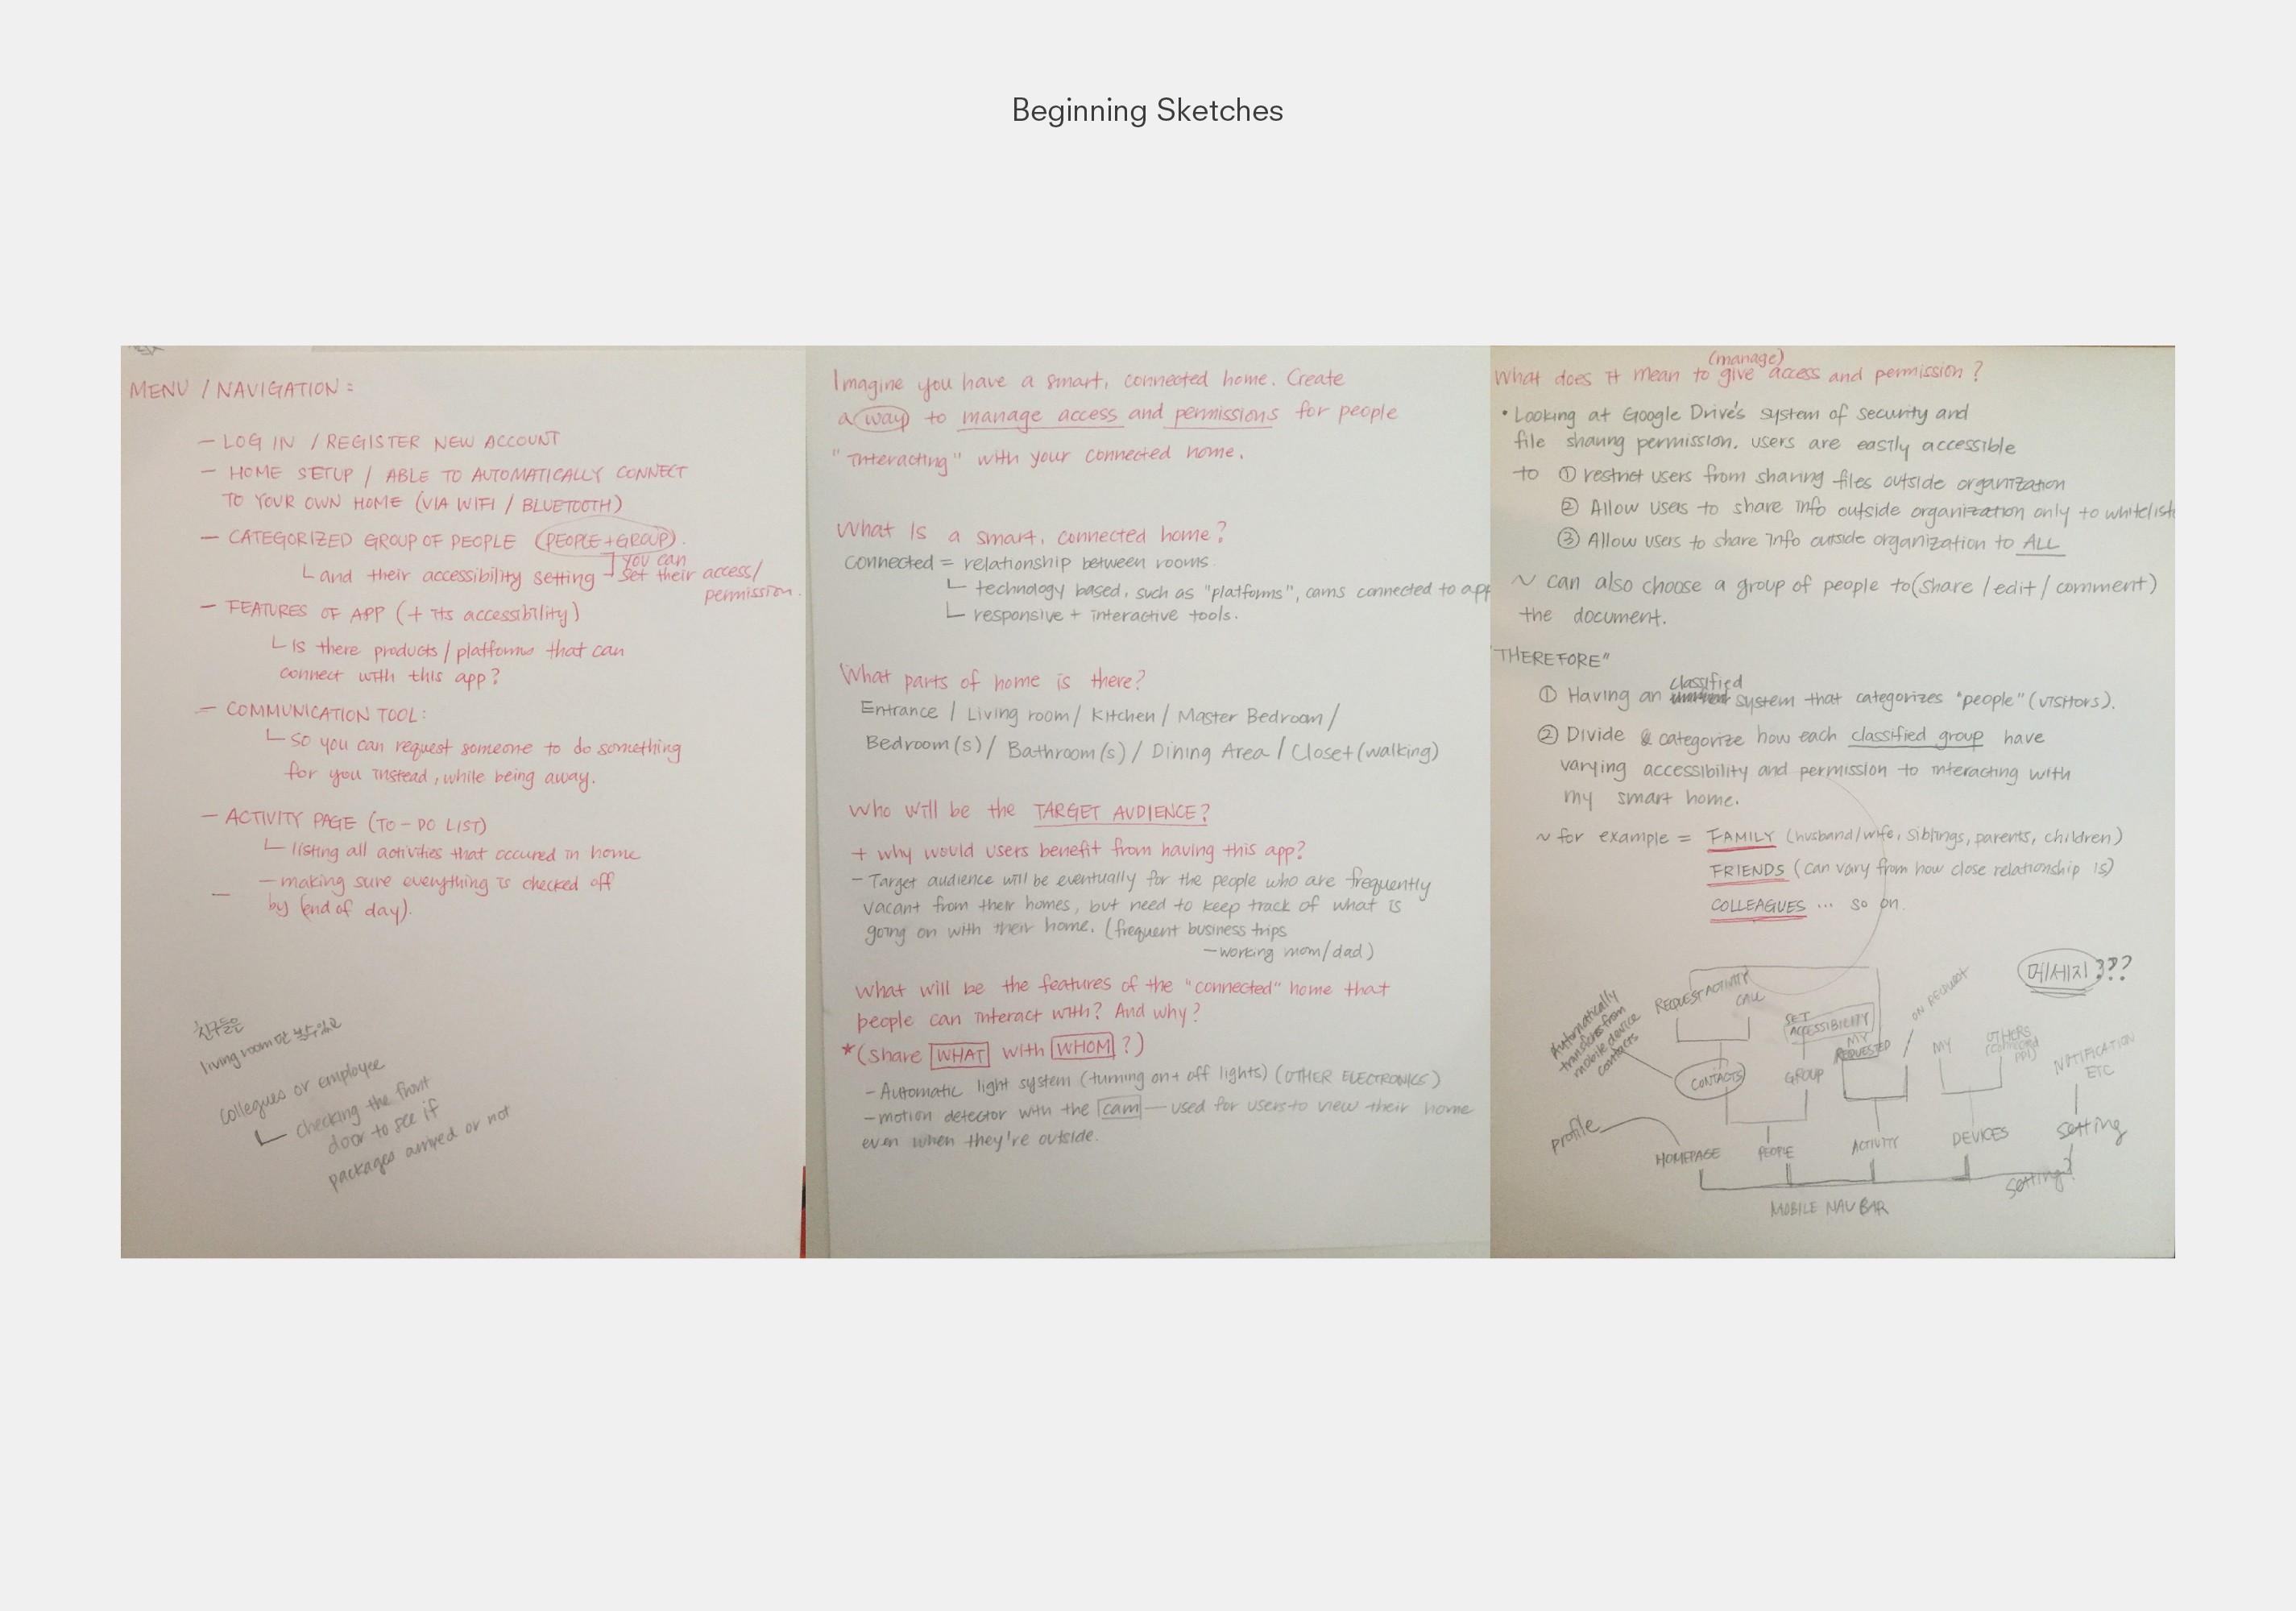 Beginning Sketches
MENU / NAVIGATION:
— LOG IN / REGISTER NEW ACCOUNT
— HOME SETUP / ABLE TO AUTOMATICALLY CONNECT
TO YOUR OWN HOME (VIA WIFI / BLUETOOTH)
— CATEGORIZED GROUP OF PEOPLE (PEOPLE+GROUP).
└ and their accessibility setting → you can set their access/
permission.
— FEATURES OF APP (+ its accessibility)
└ Is there products / platforms that can
connect with this app?
— COMMUNICATION TOOL:
└ so you can request someone to do something
for you instead, while being away.
— ACTIVITY PAGE (TO-DO LIST)
└ listing all activities that occured in home
— making sure everything is checked off
by (end of day).
—
친구들은
living room만 볼수있고
collegues or employee
└ checking the front
door to see if
packages arrived or not
Imagine you have a smart, connected home. Create
a way to manage access and permissions for people
"interacting" with your connected home.
What Is a smart, connected home?
connected = relationship between rooms.
└ technology based, such as "platforms", cams connected to app
└ responsive + interactive tools.
What parts of home is there?
Entrance / Living room / Kitchen / Master Bedroom /
Bedroom(s) / Bathroom(s) / Dining Area / Closet (walking)
Who will be the TARGET AUDIENCE?
+ why would users benefit from having this app?
— Target audience will be eventually for the people who are frequently
vacant from their homes, but need to keep track of what is
going on with their home. (frequent business trips
— working mom/dad)
What will be the features of the "connected" home that
people can interact with? And why?
*(share WHAT with WHOM?)
— Automatic light system (turning on + off lights) (OTHER ELECTRONICS)
— motion detector with the cam — used for users to view their home
even when they're outside.
(manage)
What does it mean to give access and permission?
• Looking at Google Drive's system of security and
file sharing permission. users are easily accessible
to ① restrict users from sharing files outside organization
② Allow users to share info outside organization only to whitelist
③ Allow users to share info outside organization to ALL
~ can also choose a group of people to (share / edit / comment)
the document.
"THEREFORE"
classified
① Having an system that categorizes "people" (visitors).
② Divide & categorize how each classified group have
varying accessibility and permission to interacting with
my smart home.
~ for example = FAMILY (husband/wife, siblings, parents, children)
FRIENDS (can vary from how close relationship is)
COLLEAGUES ... so on.
메세지???
Automatically
transfers from
mobile device
contacts
REQUEST ACTIVITY
CALL
SET
ACCESSIBILITY
MY
REQUESTED
ON REQUEST
MY
OTHERS
(connected
ppl)
NOTIFICATION
ETC
CONTACTS
GROUP
profile
HOMEPAGE
PEOPLE
ACTIVITY
DEVICES
setting
setting?
MOBILE NAV BAR